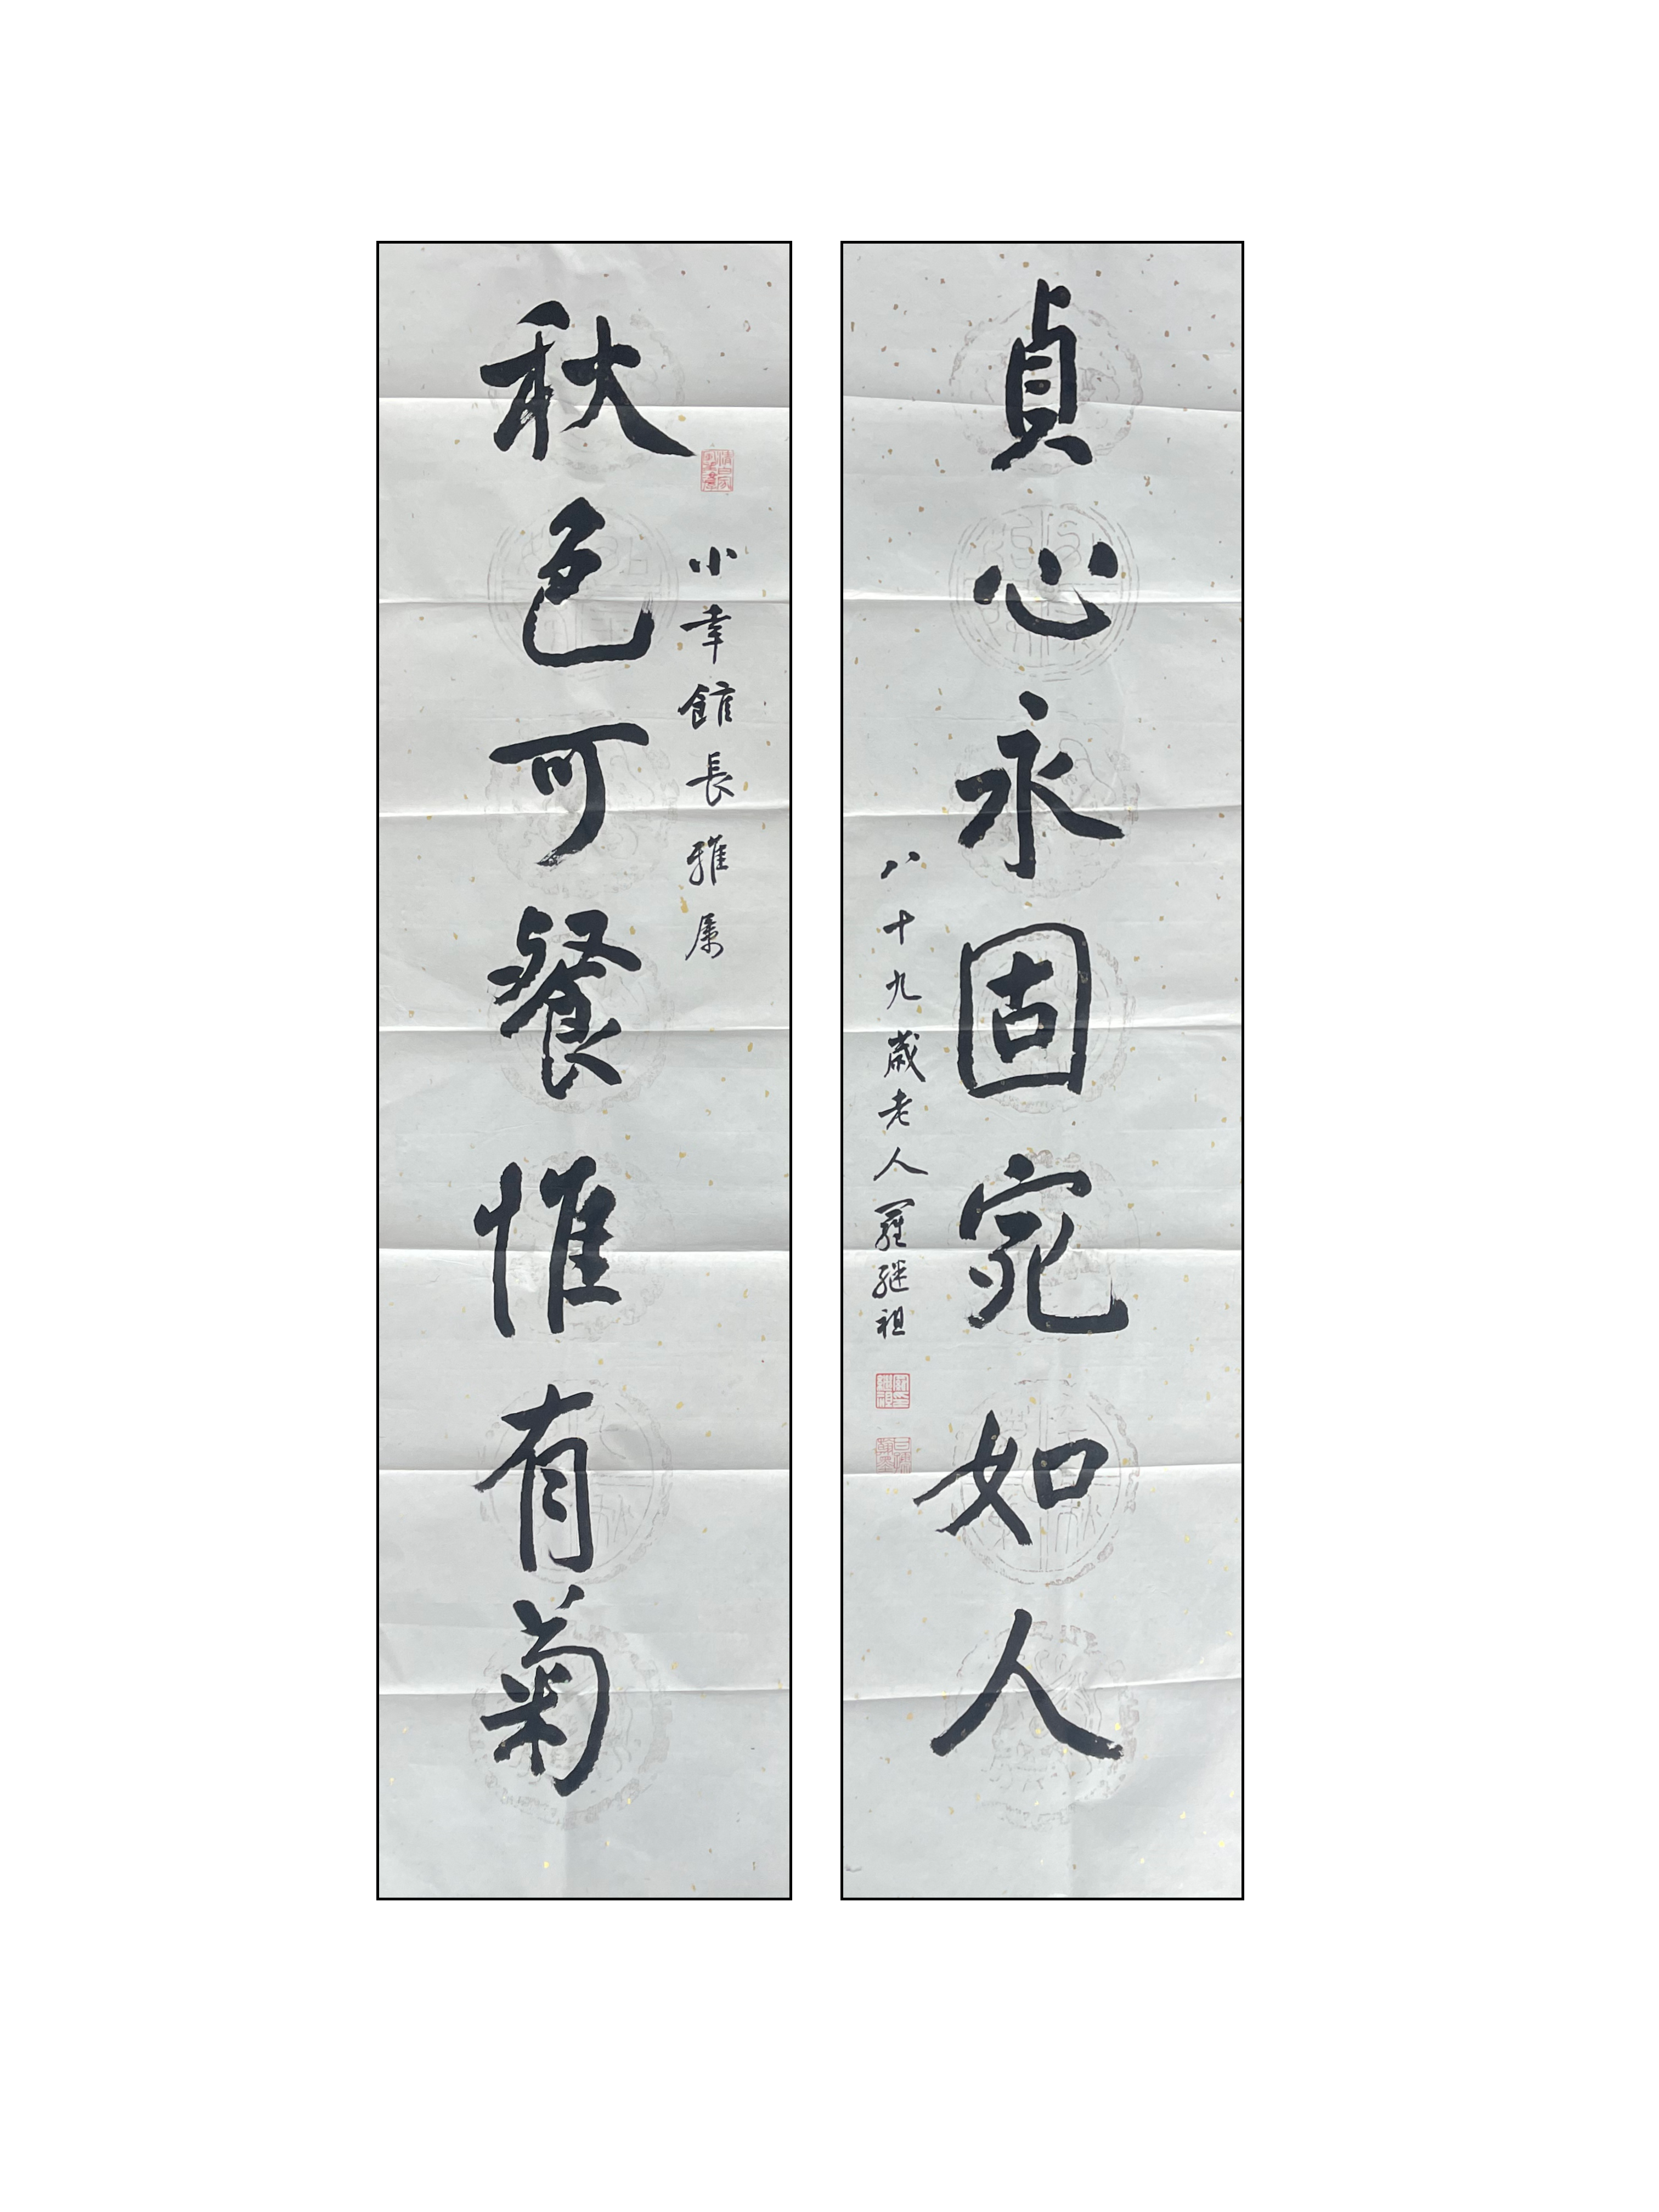 貞心永固宛如人
八十九歲老人羅继祖
小幸館長雅属
秋色可餐惟有菊